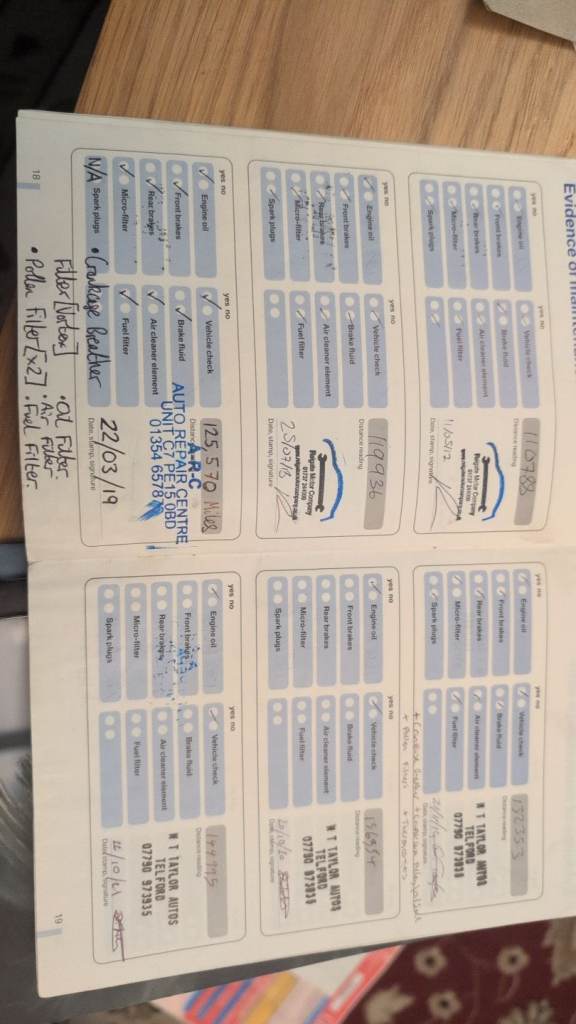 Evidence of
yes no
yes no
Engine oil
Vehicle check
Front brakes
Brake fluid
Rear brakes
Air cleaner element
Micro-filter
Fuel filter
Spark plugs
Distance reading
110788
Reigate Motor Company
01737
Date, stamp, signature
yes no
yes no
Engine oil
Vehicle check
Front brakes
Brake fluid
Rear brakes
Air cleaner element
Micro-filter
Fuel filter
Spark plugs
119936
Distance reading
Reigate Motor Company
01737
Date, stamp, signature
yes no
yes no
Engine oil
Vehicle check
Front brakes
Brake fluid
Rear brakes
Air cleaner element
Micro-filter
Fuel filter
N/A Spark plugs
125,570 Miles
Distance
A-R-C
AUTO REPAIR CENTRE
UNIT
PE15 0BD
01354 6578
22/03/19
Date, stamp, signature
• Crankcase breather
Filter [Vortex]
• Pollen Filter [x2]
• Oil Filter
• Air Filter
• Fuel Filter.
18
yes no
yes no
Engine oil
Vehicle check
Front brakes
Brake fluid
Rear brakes
Air cleaner element
Micro-filter
Fuel filter
Spark plugs
132353
Distance reading
N T TAYLOR AUTOS
TELFORD
07790 973935
Date, stamp, signature
yes no
yes no
Engine oil
Vehicle check
Front brakes
Brake fluid
Rear brakes
Air cleaner element
Micro-filter
Fuel filter
Spark plugs
Distance reading
N T TAYLOR AUTOS
TELFORD
07790 973935
Date, stamp, signature
yes no
yes no
Engine oil
Vehicle check
Front brakes
Brake fluid
Rear brakes
Air cleaner element
Micro-filter
Fuel filter
Spark plugs
Distance reading
N T TAYLOR AUTOS
TELFORD
07790 973935
Date, stamp, signature
19